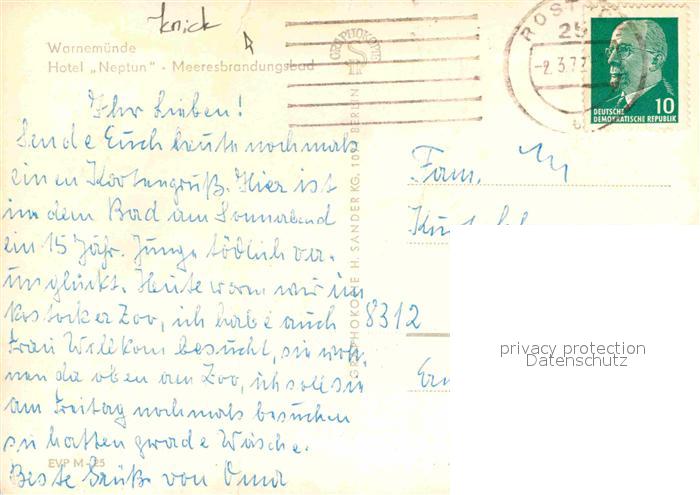 knick
Warnemünde
Hotel „Neptun" · Meeresbrandungsbad
Ihr Lieben!
Sende Euch heute nochmals
einen Kartengruß. Hier ist
in dem Bad am Sonnabend
ein 15 Jähr. Junge tödlich ver-
unglückt. Heute waren wir im
Rostocker Zoo, ich habe auch
Frau Willkom besucht, sie woh-
nen da oben am Zoo, ich soll sie
am Freitag nochmals besuchen
sie hatten grade Wäsche.
Beste Grüße von Oma
EVP M -,25
GRAPHOKOPIE H. SANDER KG, BERLIN
GRAPHOKOPIE
ROSTOCK
25
-2.3.72
DEUTSCHE
DEMOKRATISCHE REPUBLIK
10
Fam.
8312
privacy protection
Datenschutz